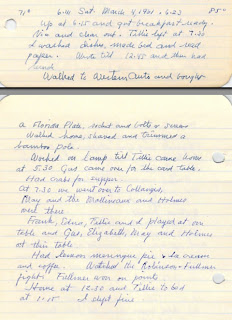 71° 6:14 Sat. March 4, 1961 . 6:23 85°
Up at 6:15 and got breakfast ready.
Nice and clear out. Tillie left at 7:30
I washed dishes, made bed and read
paper. Wrote till 12:45 and then had
lunch
Walked to Western Auto and bought
a Florida Plate, socket and bolts & screws
Walked home, shaved and trimmed a
bamboo pole.
Worked on lamp till Tillie came home
at 5:30 Gus came over for the card table.
Had crabs for supper
at 7:30 we went over to
May and the and Holmes
were there
Frank, Edna, Tillie and I played at our
table and Gus, Elizabeth, May and Holmes
at this table.
Had lemon meringue pie & ice cream
and coffee. Watched the Robinson-Fullmer
fight. Fullmer won on points.
Home at 12:30 and Tillie to bed
at 1:15 I slept fine